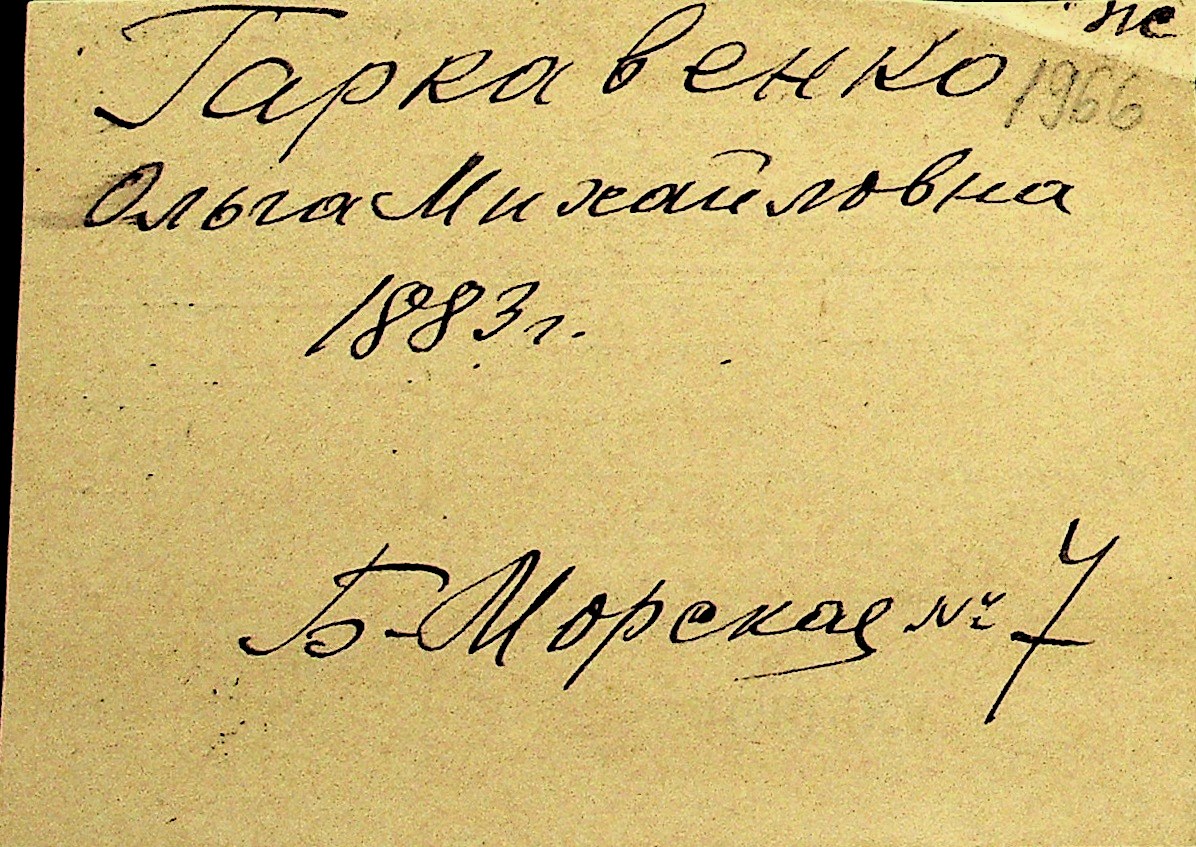 не
Гаркавенко 1966
Ольга Михайловна
1883 г.
Б-Морская № 7